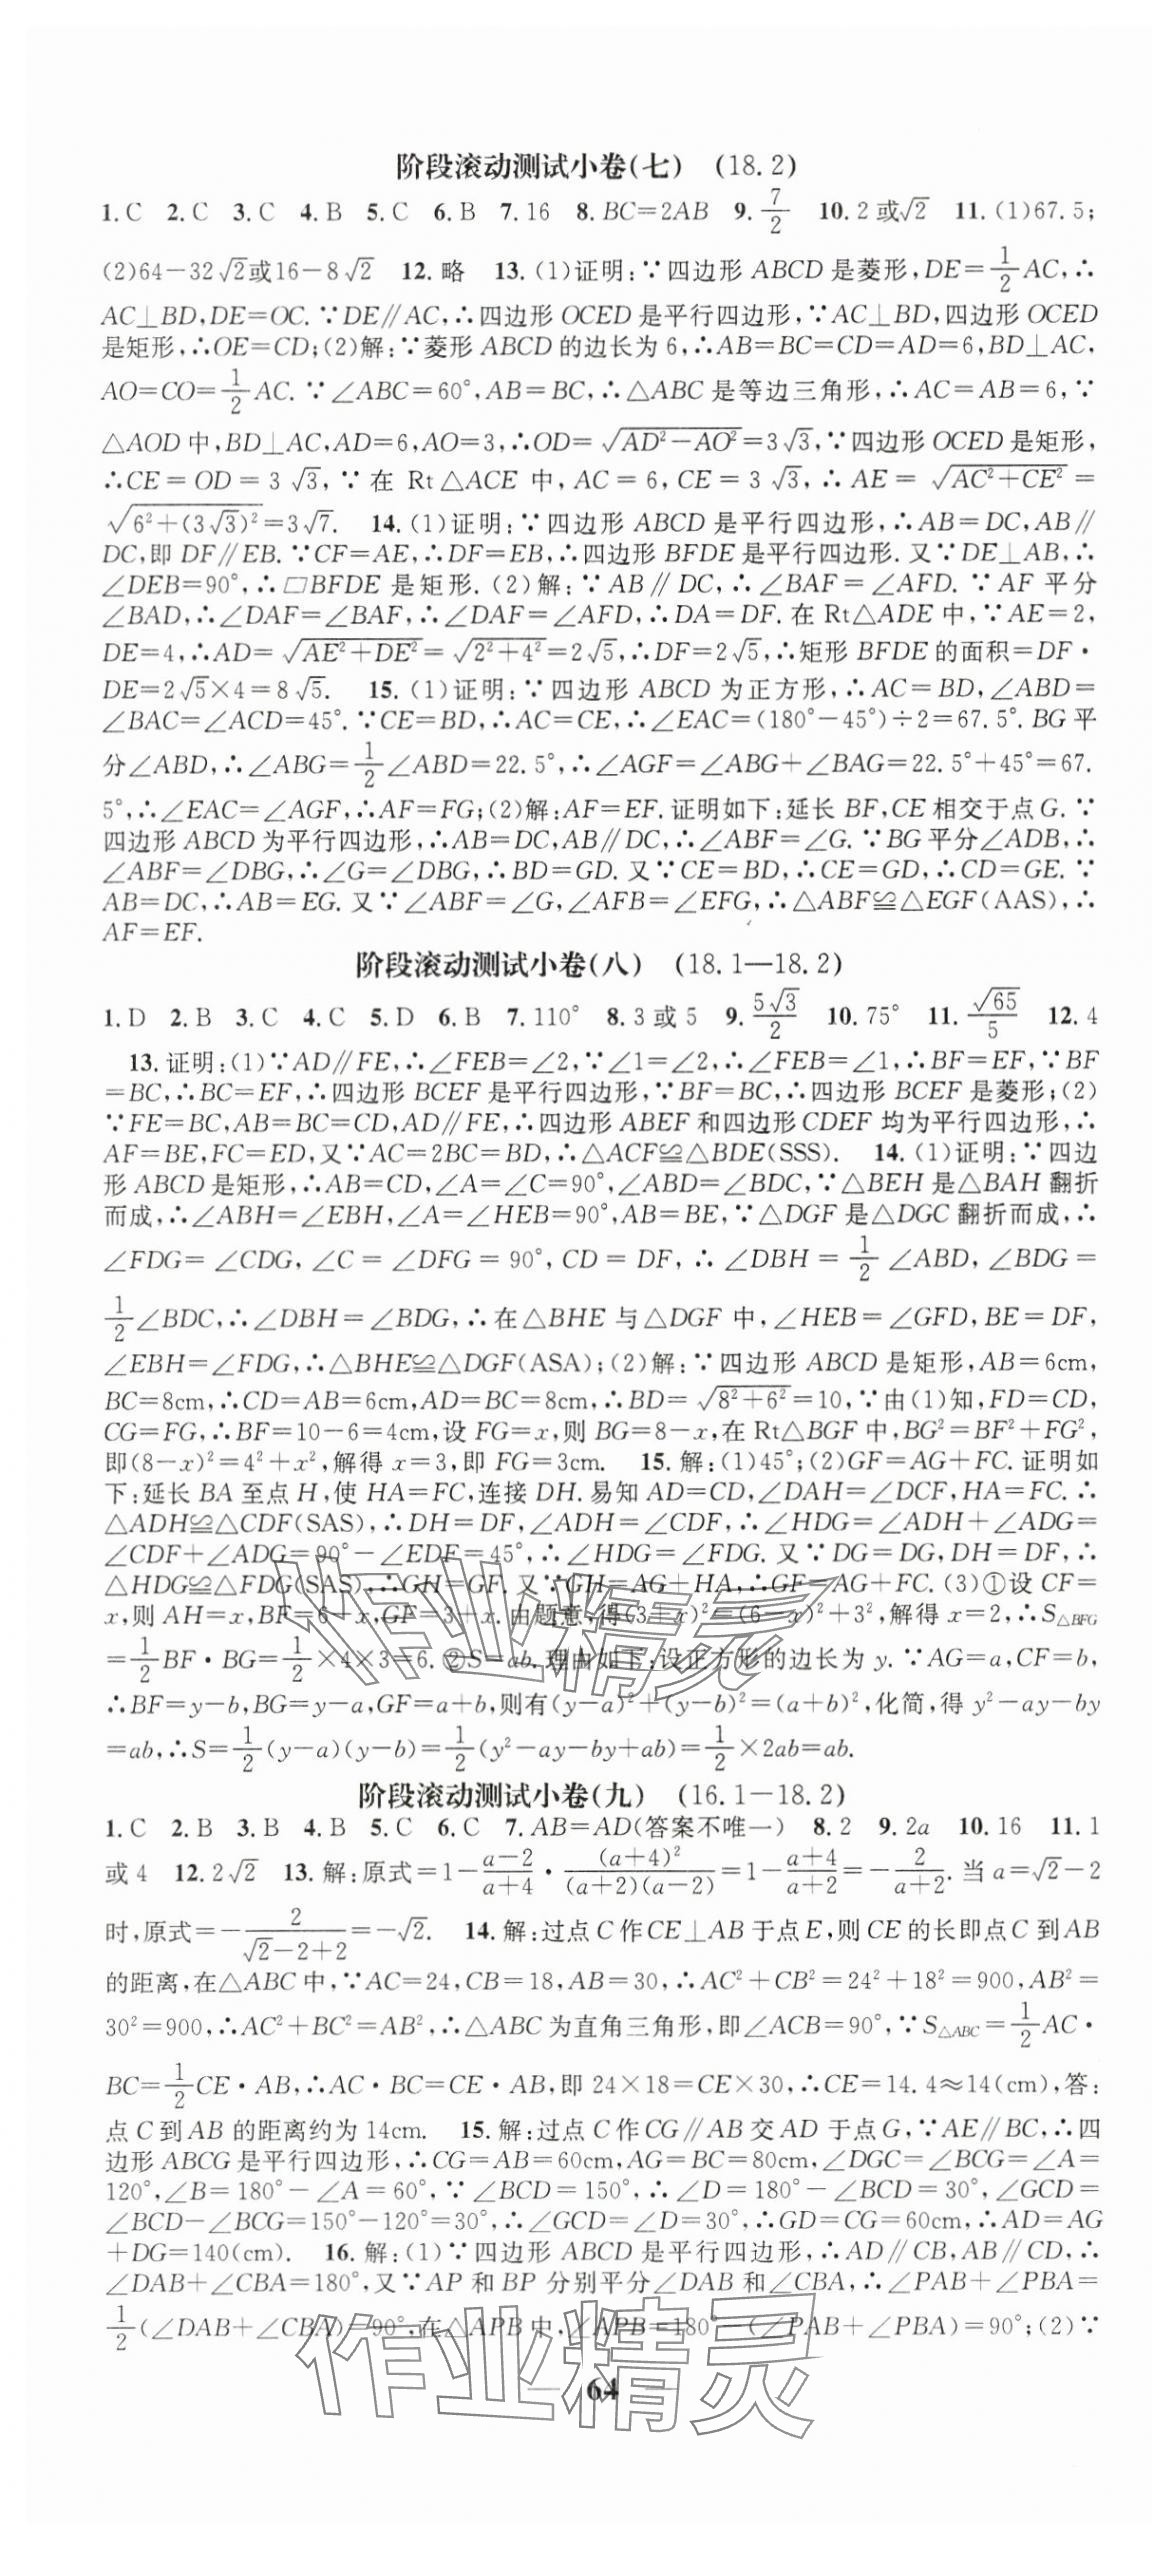 阶段滚动测试小卷(七) (18.2)
1.C 2.C 3.C 4.B 5.C 6.B 7.16 8.BC=2AB 9.7/2 10.2或√2 11.(1)67.5;
(2)64-32√2或16-8√2 12.略 13.(1)证明:∵四边形ABCD是菱形,DE=1/2AC,∴
AC⊥BD,DE=OC.∵DE∥AC,∴四边形OCED是平行四边形,∵AC⊥BD,四边形OCED
是矩形,∴OE=CD;(2)解:∵菱形ABCD的边长为6,∴AB=BC=CD=AD=6,BD⊥AC,
AO=CO=1/2AC.∵∠ABC=60°,AB=BC,∴△ABC是等边三角形,∴AC=AB=6,∵
△AOD中,BD⊥AC,AD=6,AO=3,∴OD=√(AD²-AO²)=3√3,∵四边形OCED是矩形,
∴CE=OD=3√3,∵在Rt△ACE中,AC=6,CE=3√3,∴AE=√(AC²+CE²)=
√(6²+(3√3)²)=3√7. 14.(1)证明:∵四边形ABCD是平行四边形,∴AB=DC,AB∥
DC,即DF∥EB.∵CF=AE,∴DF=EB,∴四边形BFDE是平行四边形.又∵DE⊥AB,∴
∠DEB=90°,∴□BFDE是矩形.(2)解:∵AB∥DC,∴∠BAF=∠AFD.∵AF平分
∠BAD,∴∠DAF=∠BAF,∴∠DAF=∠AFD,∴DA=DF.在Rt△ADE中,∵AE=2,
DE=4,∴AD=√(AE²+DE²)=√(2²+4²)=2√5,∴DF=2√5,∴矩形BFDE的面积=DF·
DE=2√5×4=8√5. 15.(1)证明:∵四边形ABCD为正方形,∴AC=BD,∠ABD=
∠BAC=∠ACD=45°.∵CE=BD,∴AC=CE,∴∠EAC=(180°-45°)÷2=67.5°.BG平
分∠ABD,∴∠ABG=1/2∠ABD=22.5°,∴∠AGF=∠ABG+∠BAG=22.5°+45°=67.
5°,∴∠EAC=∠AGF,∴AF=FG;(2)解:AF=EF.证明如下:延长BF,CE相交于点G.∵
四边形ABCD为平行四边形,∴AB=DC,AB∥DC,∴∠ABF=∠G.∵BG平分∠ADB,∴
∠ABF=∠DBG,∴∠G=∠DBG,∴BD=GD.又∵CE=BD,∴CE=GD,∴CD=GE.∵
AB=DC,∴AB=EG.又∵∠ABF=∠G,∠AFB=∠EFG,∴△ABF≌△EGF(AAS),∴
AF=EF.
阶段滚动测试小卷(八) (18.1—18.2)
1.D 2.B 3.C 4.C 5.D 6.B 7.110° 8.3或5 9.5√3/2 10.75° 11.√65/5 12.4
13.证明:(1)∵AD∥FE,∴∠FEB=∠2,∵∠1=∠2,∴∠FEB=∠1,∴BF=EF,∵BF
=BC,∴BC=EF,∴四边形BCEF是平行四边形,∵BF=BC,∴四边形BCEF是菱形;(2)
∵FE=BC,AB=BC=CD,AD∥FE,∴四边形ABEF和四边形CDEF均为平行四边形,∴
AF=BE,FC=ED,又∵AC=2BC=BD,∴△ACF≌△BDE(SSS). 14.(1)证明:∵四边
形ABCD是矩形,∴AB=CD,∠A=∠C=90°,∠ABD=∠BDC,∵△BEH是△BAH翻折
而成,∴∠ABH=∠EBH,∠A=∠HEB=90°,AB=BE,∵△DGF是△DGC翻折而成,∴
∠FDG=∠CDG,∠C=∠DFG=90°,CD=DF,∴∠DBH=1/2∠ABD,∠BDG=
1/2∠BDC,∴∠DBH=∠BDG,∴在△BHE与△DGF中,∠HEB=∠GFD,BE=DF,
∠EBH=∠FDG,∴△BHE≌△DGF(ASA);(2)解:∵四边形ABCD是矩形,AB=6cm,
BC=8cm,∴CD=AB=6cm,AD=BC=8cm,∴BD=√(8²+6²)=10,∵由(1)知,FD=CD,
CG=FG,∴BF=10-6=4cm,设FG=x,则BG=8-x,在Rt△BGF中,BG²=BF²+FG²,
即(8-x)²=4²+x²,解得x=3,即FG=3cm. 15.解:(1)45°;(2)GF=AG+FC.证明如
下:延长BA至点H,使HA=FC,连接DH.易知AD=CD,∠DAH=∠DCF,HA=FC.∴
△ADH≌△CDF(SAS),∴DH=DF,∠ADH=∠CDF,∴∠HDG=∠ADH+∠ADG=
∠CDF+∠ADG=90°-∠EDF=45°,∴∠HDG=∠FDG.又∵DG=DG,DH=DF,∴
△HDG≌△FDG(SAS),∴GH=GF.又∵GH=AG+HA,∴GF=AG+FC.(3)①设CF=
x,则AH=x,BF=6-x,GF=3+x.由题意,得(3+x)²=(6-x)²+3²,解得x=2,∴S△BFG
=1/2BF·BG=1/2×4×3=6.②S=ab.理由如下:设正方形的边长为y.∵AG=a,CF=b,
∴BF=y-b,BG=y-a,GF=a+b,则有(y-a)²+(y-b)²=(a+b)²,化简,得y²-ay-by
=ab,∴S=1/2(y-a)(y-b)=1/2(y²-ay-by+ab)=1/2×2ab=ab.
阶段滚动测试小卷(九) (16.1—18.2)
1.C 2.B 3.B 4.B 5.C 6.C 7.AB=AD(答案不唯一) 8.2 9.2a 10.16 11.1
或4 12.2√2 13.解:原式=1-(a-2)/(a+4)·(a+4)²/((a+2)(a-2))=1-(a+4)/(a+2)=-2/(a+2).当a=√2-2
时,原式=-2/(√2-2+2)=-√2. 14.解:过点C作CE⊥AB于点E,则CE的长即点C到AB
的距离,在△ABC中,∵AC=24,CB=18,AB=30,∴AC²+CB²=24²+18²=900,AB²=
30²=900,∴AC²+BC²=AB²,∴△ABC为直角三角形,即∠ACB=90°,∵S△ABC=1/2AC·
BC=1/2CE·AB,∴AC·BC=CE·AB,即24×18=CE×30,∴CE=14.4≈14(cm),答:
点C到AB的距离约为14cm. 15.解:过点C作CG∥AB交AD于点G,∵AE∥BC,∴四
边形ABCG是平行四边形,∴CG=AB=60cm,AG=BC=80cm,∠DGC=∠BCG=∠A=
120°,∠B=180°-∠A=60°,∵∠BCD=150°,∴∠D=180°-∠BCD=30°,∠GCD=
∠BCD-∠BCG=150°-120°=30°,∴∠GCD=∠D=30°,∴GD=CG=60cm,∴AD=AG
+DG=140(cm). 16.解:(1)∵四边形ABCD是平行四边形,∴AD∥CB,AB∥CD,∴
∠DAB+∠CBA=180°,又∵AP和BP分别平分∠DAB和∠CBA,∴∠PAB+∠PBA=
1/2(∠DAB+∠CBA)=90°,在△APB中,∠APB=180°-(∠PAB+∠PBA)=90°;(2)∵
— 64 —
作业精灵
作业精灵